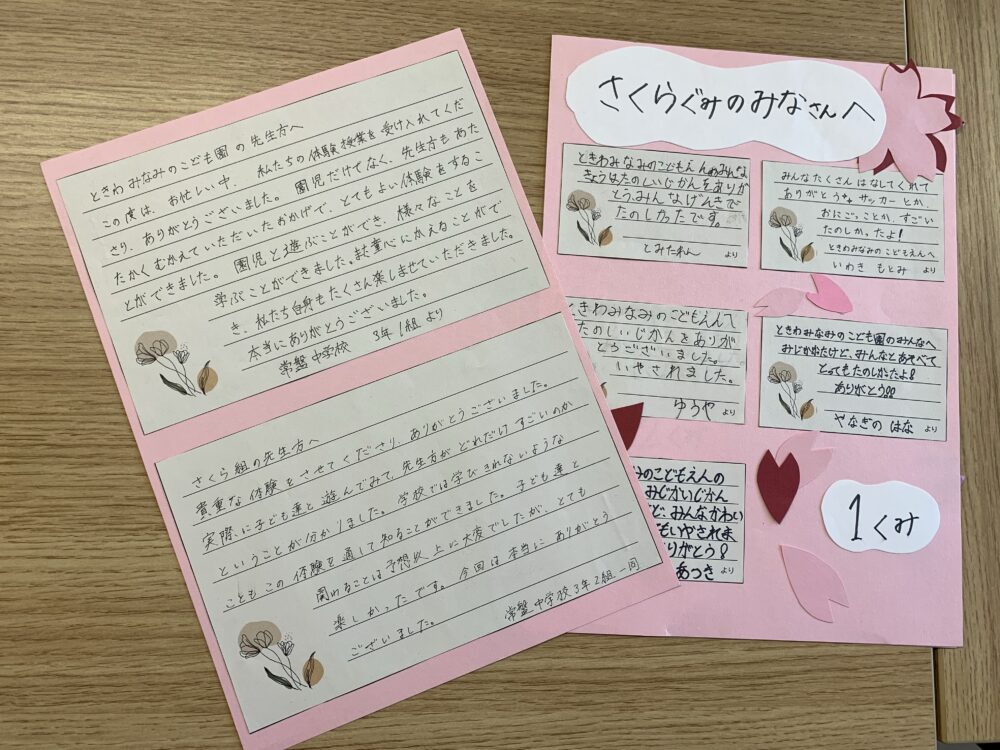 ときわみなみのこども園の先生方へ
この度は、お忙しい中、私たちの体験授業を受け入れてくだ
さり、ありがとうございました。園児だけでなく、先生方もあた
たかくむかえていただいたおかげで、とてもよい体験をするこ
とができました。園児と遊ぶことができ、様々なことを
学ぶことができました。童心にかえることがで
き、私たち自身もたくさん楽しませていただきました。
本当にありがとうございました。
常盤中学校 3年1組より
さくら組の先生方へ
貴重な体験をさせてくださり、ありがとうございました。
実際に子ども達と遊んでみて、先生方がどれだけすごいのか
ということが分かりました。学校では学びきれないような
こともこの体験を通して知ることができました。子ども達と
関わることは予想以上に大変でしたが、とても
楽しかったです。今回は本当にありがとう
ございました。
常盤中学校3年2組一同
さくらぐみのみなさんへ
ときわみなみのこどもえんのみんな
きょうはたのしいじかんをありが
とう。みんなげんきで
たのしかったです。
とみたれん より
みんなたくさんはなしてくれて
ありがとう。サッカーとか、
おにごっことか、すごい
たのしかったよ!
ときわみなみのこどもえんへ
いわき もとみ より
ときわみなみのこどもえんへ
たのしいじかんをありが
とうございました。
いやされました。
ゆうや より
ときわみなみのこども園のみんなへ
みじかかったけど、みんなとあそべて
とってもたのしかったよ!
ありがとう!!
やなぎの はな より
みのこどもえんの
みじかいじかん
ど、みんなかわい
もいやされま
りがとう!
あつき より
1くみ